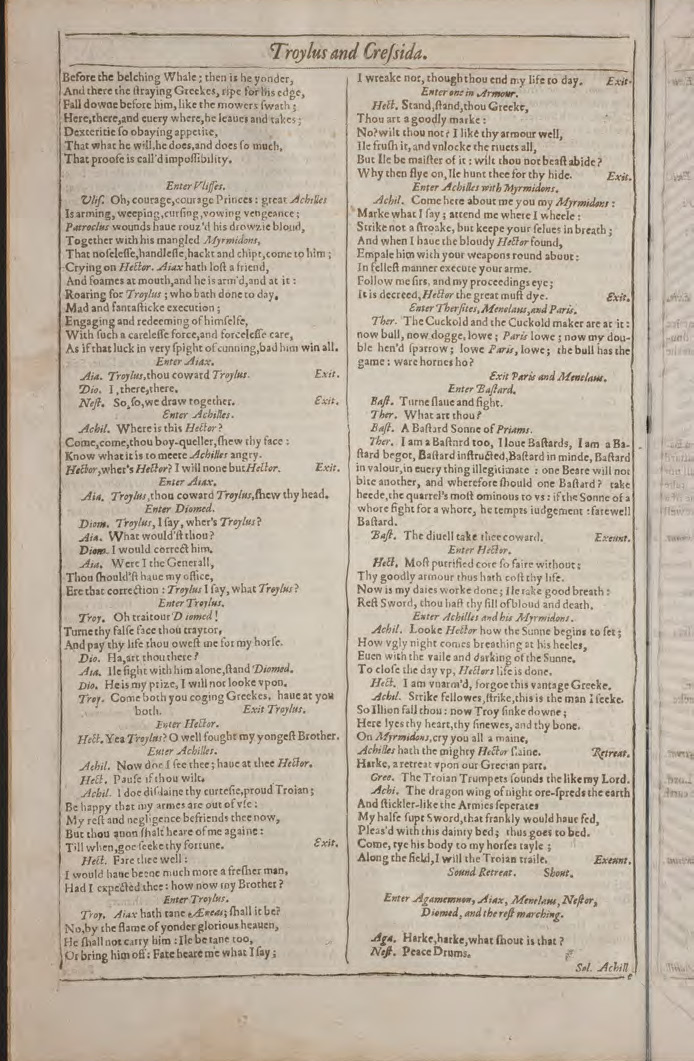 Troylus and Cressida.
Before the belching Whale; then is he yonder,
And there the straying Greekes, ripe for his edge,
Fall downe before him, like the mowers swath;
Here, there, and euery where, he leaues and takes;
Dexteritie so obaying appetite,
That what he will, he does, and does so much,
That proofe is call'd impossibility.
Enter Vlisses.
Vlis. Oh, courage, courage Princes: great Achilles
Is arming, weeping, cursing, vowing vengeance;
Patroclus wounds haue rouz'd his drowzie bloud,
Together with his mangled Myrmidons,
That noselesse, handlesse, hackt and chipt, come to him;
Crying on Hector. Aiax hath lost a friend,
And foames at mouth, and he is arm'd, and at it:
Roaring for Troylus; who hath done to day,
Mad and fantasticke execution;
Engaging and redeeming of himselfe,
With such a carelesse force, and forcelesse care,
As if that luck in very spight of cunning, bad him win all.
Enter Aiax.
Aia. Troylus, thou coward Troylus. Exit.
Dio. I, there, there.
Nest. So, so, we draw together. Exit.
Enter Achilles.
Achil. Where is this Hector?
Come, come, thou boy-queller, shew thy face:
Know what it is to meete Achilles angry.
Hector, wher's Hector? I will none but Hector. Exit.
Enter Aiax.
Aia. Troylus, thou coward Troylus, shew thy head.
Enter Diomed.
Diom. Troylus, I say, wher's Troylus?
Aia. What would'st thou?
Diom. I would correct him.
Aia. Were I the Generall,
Thou should'st haue my office,
Ere that correction: Troylus I say, what Troylus?
Enter Troylus.
Troy. Oh traitour Diomed!
Turne thy false face thou traytor,
And pay thy life thou owest me for my horse.
Dio. Ha, art thou there?
Aia. Ile fight with him alone, stand Diomed.
Dio. He is my prize, I will not looke vpon.
Troy. Come both you coging Greekes, haue at you
both. Exit Troylus.
Enter Hector.
Hect. Yea Troylus? O well fought my yongest Brother.
Enter Achilles.
Achil. Now doe I see thee; haue at thee Hector.
Hect. Pause if thou wilt.
Achil. I doe disdaine thy curtesie, proud Troian;
Be happy that my armes are out of vse:
My rest and negligence befriends thee now,
But thou anon shalt heare of me againe:
Till when, goe seeke thy fortune. Exit.
Hect. Fare thee well:
I would haue beene much more a fresher man,
Had I expected thee: how now my Brother?
Enter Troylus.
Troy. Aiax hath tane Æneas; shall it be?
No, by the flame of yonder glorious heauen,
He shall not carry him: Ile be tane too,
Or bring him off: Fate heare me what I say;
I wreake not, though thou end my life to day. Exit.
Enter one in Armour.
Hect. Stand, stand, thou Greeke,
Thou art a goodly marke:
No? wilt thou not? I like thy armour well,
Ile frush it, and vnlocke the riuets all,
But Ile be maister of it: wilt thou not beast abide?
Why then flye on, Ile hunt thee for thy hide. Exit.
Enter Achilles with Myrmidons.
Achil. Come here about me you my Myrmidons:
Marke what I say; attend me where I wheele:
Strike not a stroake, but keepe your selues in breath;
And when I haue the bloudy Hector found,
Empale him with your weapons round about:
In fellest manner execute your arme.
Follow me sirs, and my proceedings eye;
It is decreed, Hector the great must dye. Exit.
Enter Thersites, Menelaus, and Paris.
Ther. The Cuckold and the Cuckold maker are at it:
now bull, now dogge, lowe; Paris lowe; now my dou-
ble hen'd sparrow; lowe Paris, lowe; the bull has the
game: ware hornes ho?
Exit Paris and Menelaus.
Enter Bastard.
Bast. Turne slaue and fight.
Ther. What art thou?
Bast. A Bastard Sonne of Priams.
Ther. I am a Bastard too, I loue Bastards, I am a Ba-
stard begot, Bastard instructed, Bastard in minde, Bastard
in valour, in euery thing illegitimate: one Beare will not
bite another, and wherefore should one Bastard? take
heede, the quarrel's most ominous to vs: if the Sonne of a
whore fight for a whore, he tempts iudgement: farewell
Bastard.
Bast. The diuell take thee coward. Exeunt.
Enter Hector.
Hect. Most putrified core so faire without:
Thy goodly armour thus hath cost thy life.
Now is my daies worke done; Ile take good breath:
Rest Sword, thou hast thy fill of bloud and death.
Enter Achilles and his Myrmidons.
Achil. Looke Hector how the Sunne begins to set;
How vgly night comes breathing at his heeles,
Euen with the vaile and darking of the Sunne.
To close the day vp, Hectors life is done.
Hect. I am vnarm'd, forgoe this vantage Greeke.
Achil. Strike fellowes, strike, this is the man I seeke.
So Illion fall thou: now Troy sinke downe;
Here lyes thy heart, thy sinewes, and thy bone.
On Myrmidons, cry you all a maine,
Achilles hath the mighty Hector slaine. Retreat.
Harke, a retreat vpon our Grecian part.
Gree. The Troian Trumpets sounds the like my Lord.
Achi. The dragon wing of night ore-spreds the earth
And stickler-like the Armies seperates
My halfe supt Sword, that frankly would haue fed,
Pleas'd with this dainty bed; thus goes to bed.
Come, tye his body to my horses tayle;
Along the field, I will the Troian traile. Exeunt.
Sound Retreat. Shout.
Enter Agamemnon, Aiax, Menelaus, Nestor,
Diomed, and the rest marching.
Aga. Harke, harke, what shout is that?
Nest. Peace Drums.
Sol. Achill